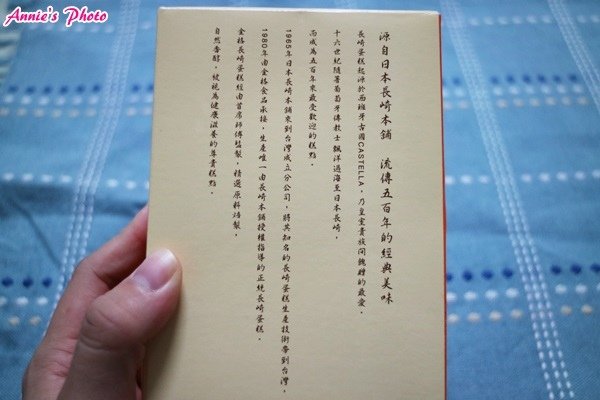 Annie's Photo
源自日本長崎本舖 流傳五百年的經典美味
長崎蛋糕起源於西班牙古國CASTELLA，乃皇室貴族間餽贈的最愛。
十六世紀隨著葡萄牙傳教士飄洋過海至日本長崎，
而成為五百年來最受歡迎的糕點。
1965年日本長崎本舖來到台灣成立分公司，將其知名的長崎蛋糕生產技術帶到台灣。
1980年由金格食品承接，生產唯一由長崎本舖授權指導的正統長崎蛋糕。
金格長崎蛋糕經由首席師傅監製，精選原料焙製，
自然香醇，被視為健康滋養的尊貴糕點。